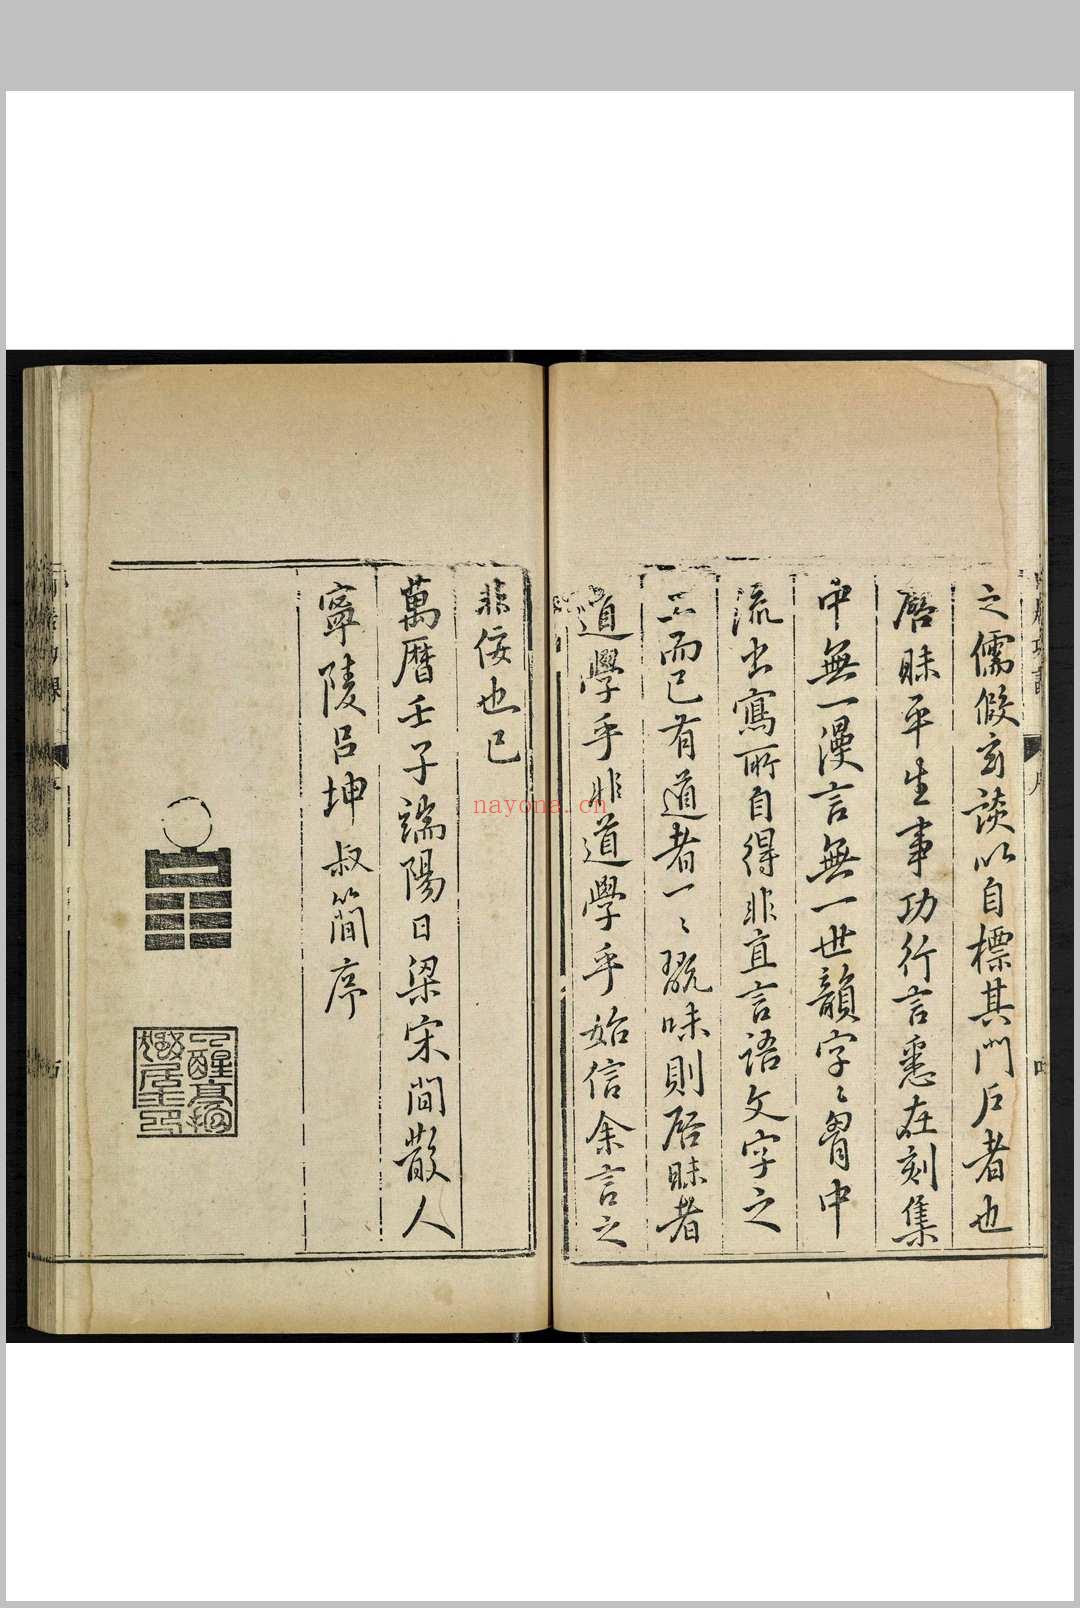 之儒假玄談以自標其門戶者也
啓昧平生事功行言悉在刻集
中無一漫言無一世韻字〻胷中
流出寫所自得非直言語文字之
工而已有道者一〻翫味則啓昧者
道學乎非道學乎始信余言之
非佞也已
萬曆壬子端陽日梁宋閒散人
寧陵呂坤叔簡序
nayona.cn